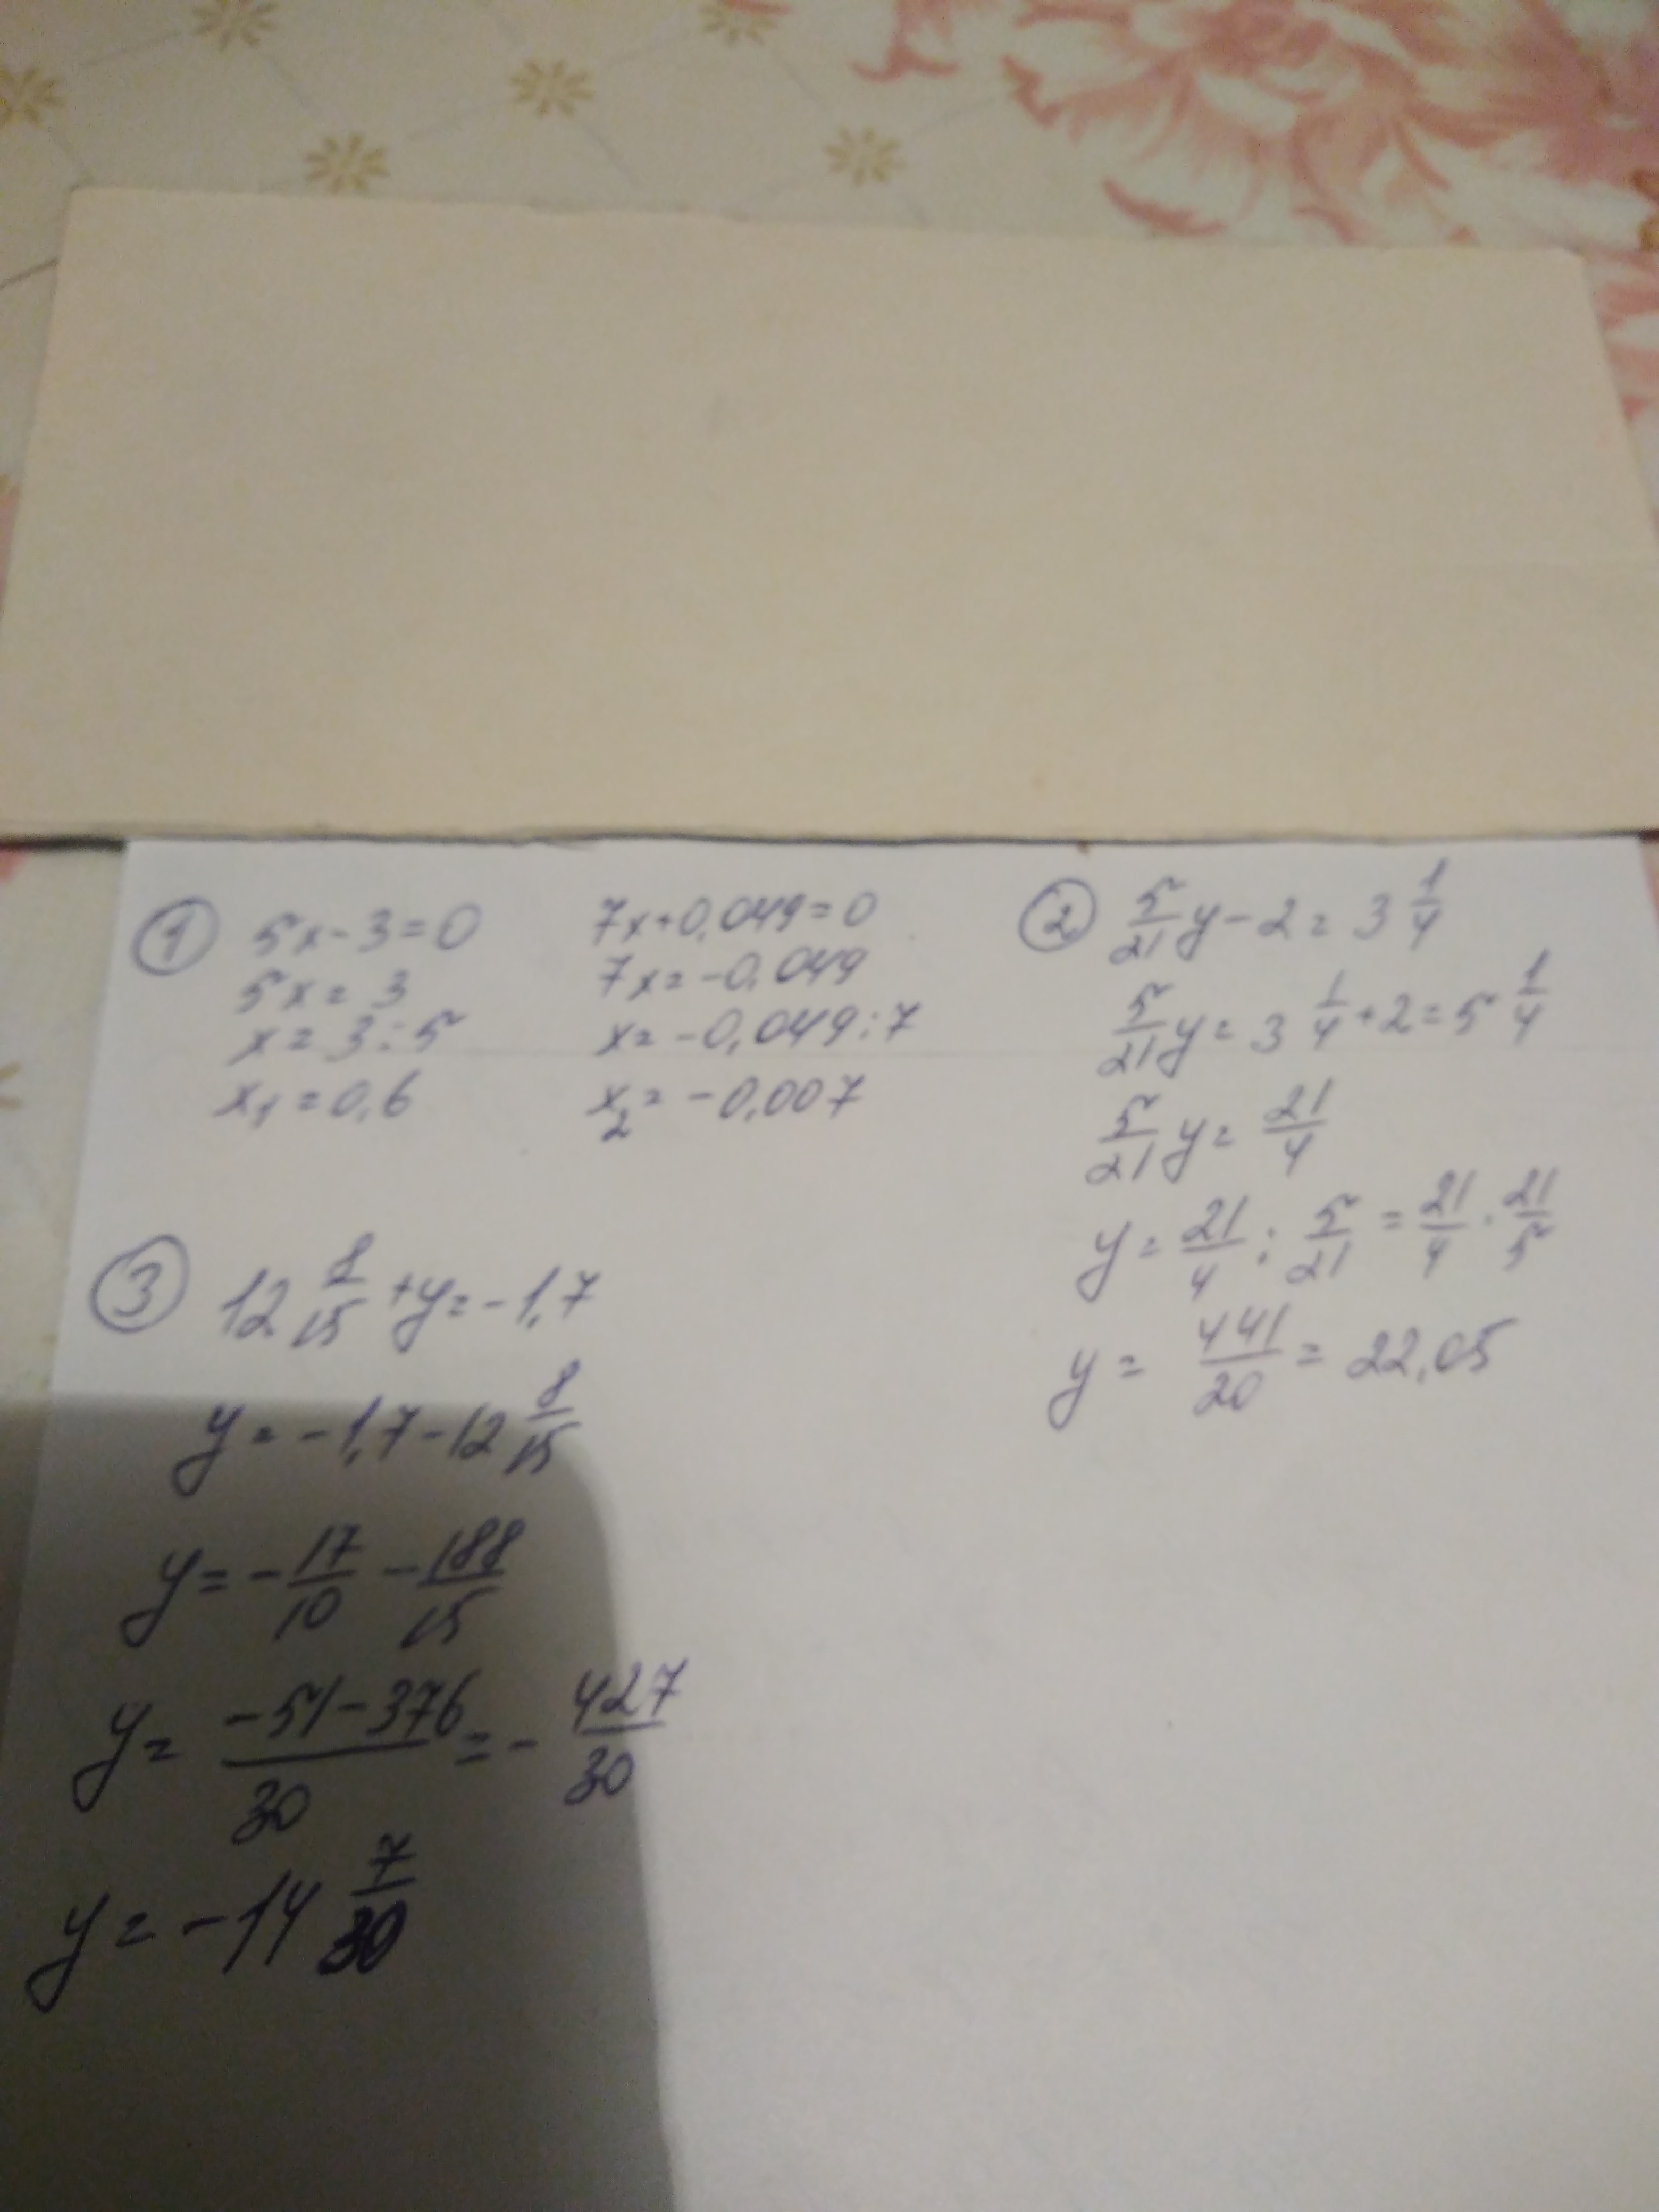 ① 5x-3=0
5x=3
x=3:5
x₁=0,6
7x+0,049=0
7x=-0,049
x=-0,049:7
x₂=-0,007
② 5/21 y-2=3 1/4
5/21 y=3 1/4+2=5 1/4
5/21 y=21/4
y=21/4:5/21=21/4·21/5
y=441/20=22,05
③ 12 8/15+y=-1,7
y=-1,7-12 8/15
y=-17/10-188/15
y=(-51-376)/30=-427/30
y=-14 7/30